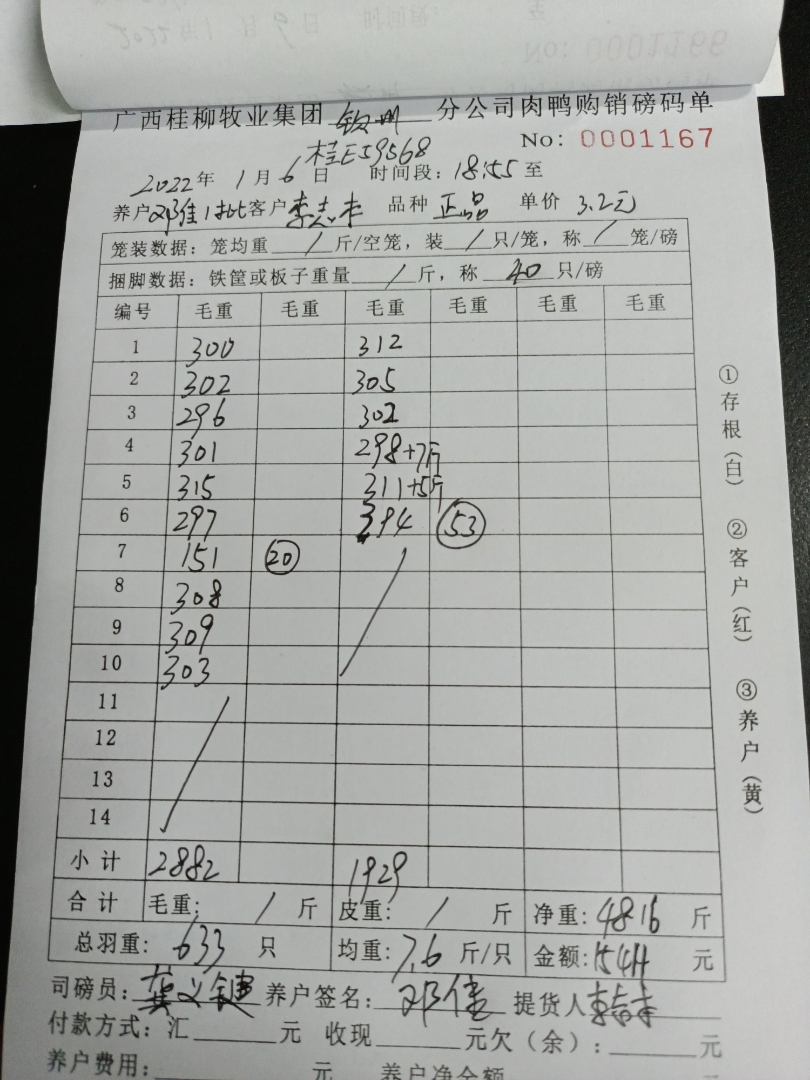 广西桂柳牧业集团 钦州 分公司肉鸭购销磅码单
桂E59568 No: 0001167
2022年 1月 6日 时间段: 18:55 至
养户 邓佳1批 客户 品种 正品 单价 3.2元
笼装数据: 笼均重 / 斤/空笼, 装 / 只/笼, 称 / 笼/磅
捆脚数据: 铁筐或板子重量 / 斤, 称 40 只/磅
编号 毛重 毛重 毛重 毛重 毛重 毛重
1 300 312
2 302 305
3 296 302
4 301 298+7斤
5 315 311+5斤
6 297 394 53
7 151 20
8 308
9 309
10 303
11
12
13
14
小计 2882 1929
合计 毛重: / 斤 皮重: / 斤 净重: 4816 斤
总羽重: 633 只 均重: 7.6 斤/只 金额: 15411 元
司磅员: 龚义键 养户签名: 邓佳 提货人
付款方式: 汇 元 收现 元欠(余): 元
养户费用: 元 养户净金额
①存根(白) ②客户(红) ③养户(黄)